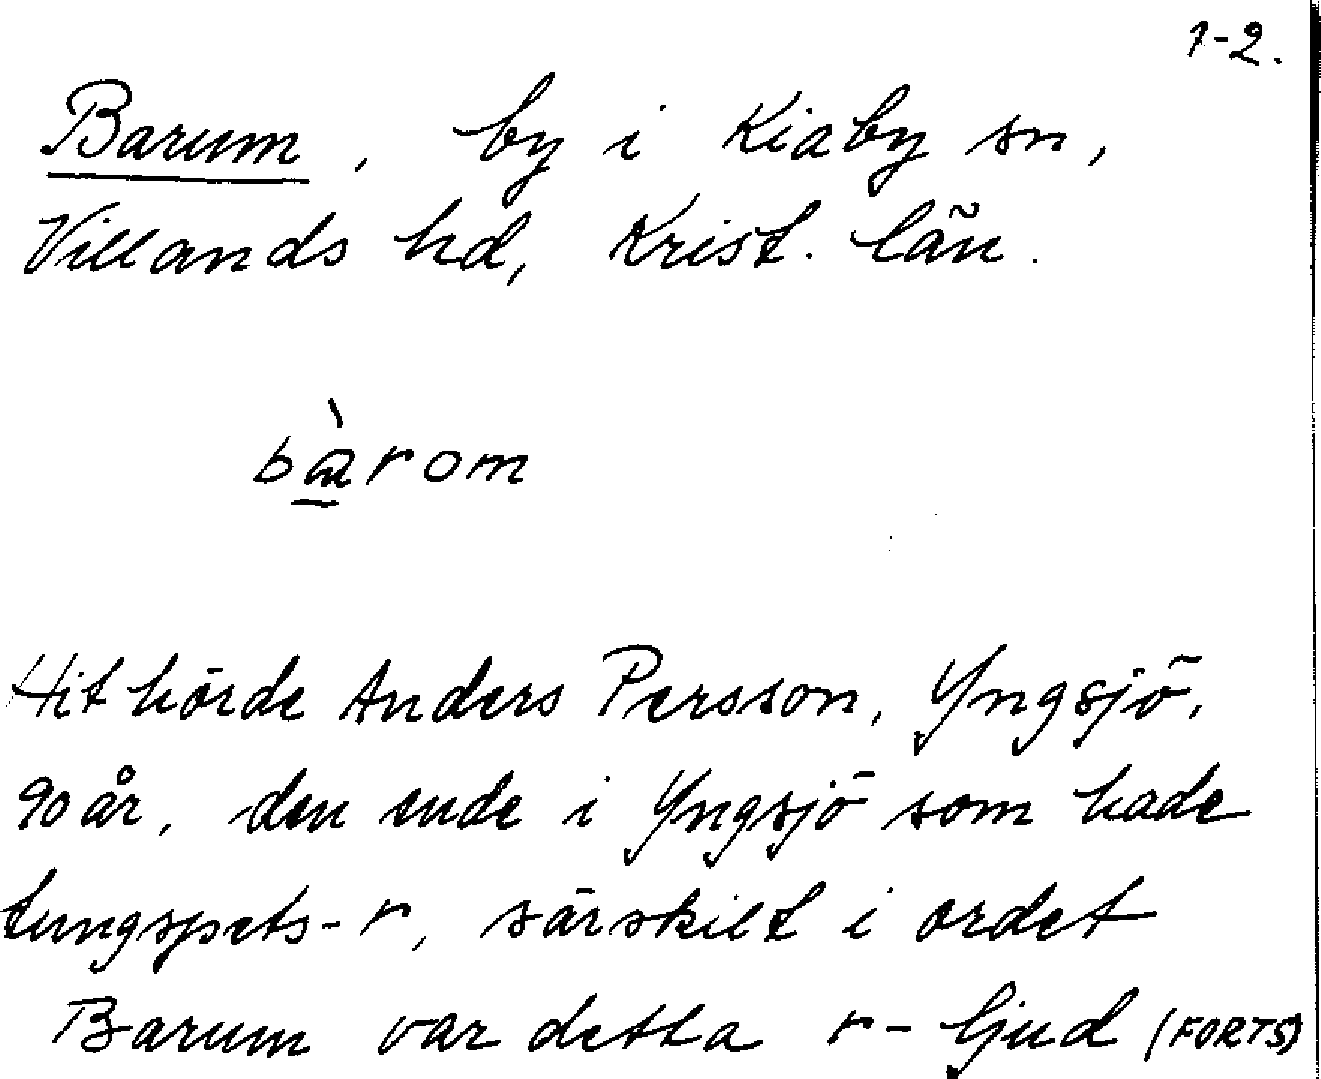 1-2.
Barum, by i Kiaby sn,
Villands hd, Krist. län.
bà̱rom
Hit hörde Anders Persson, Yngsjö,
90 år, den ende i Yngsjö som hade
tungspets-r, särskilt i ordet
Barum var detta r-ljud (FORTS)